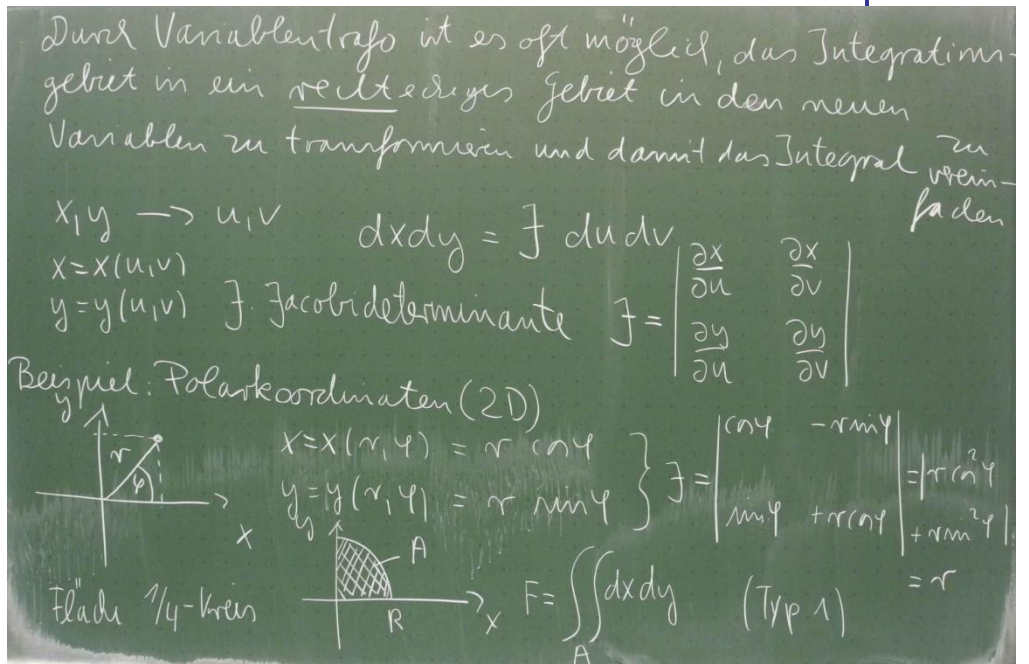 Durch Variablentrafo ist es oft möglich, das Integrations-
gebiet in ein rechteckiges Gebiet in den neuen
Variablen zu transformieren und damit das Integral zu
verein-
fachen
x,y → u,v
dxdy = J du dv
x=x(u,v)
y=y(u,v)
J: Jacobideterminante
J = | ∂x/∂u ∂x/∂v |
| ∂y/∂u ∂y/∂v |
Beispiel: Polarkoordinaten (2D)
y
r
φ
x
x=x(r,φ) = r cosφ
y=y(r,φ) = r sinφ
} J = | cosφ -r sinφ |
| sinφ +r cosφ |
= |r cos²φ
+ r sin²φ|
= r
Fläche 1/4-Kreis
y
A
R
x
F = ∬ dxdy
A
(Typ 1)